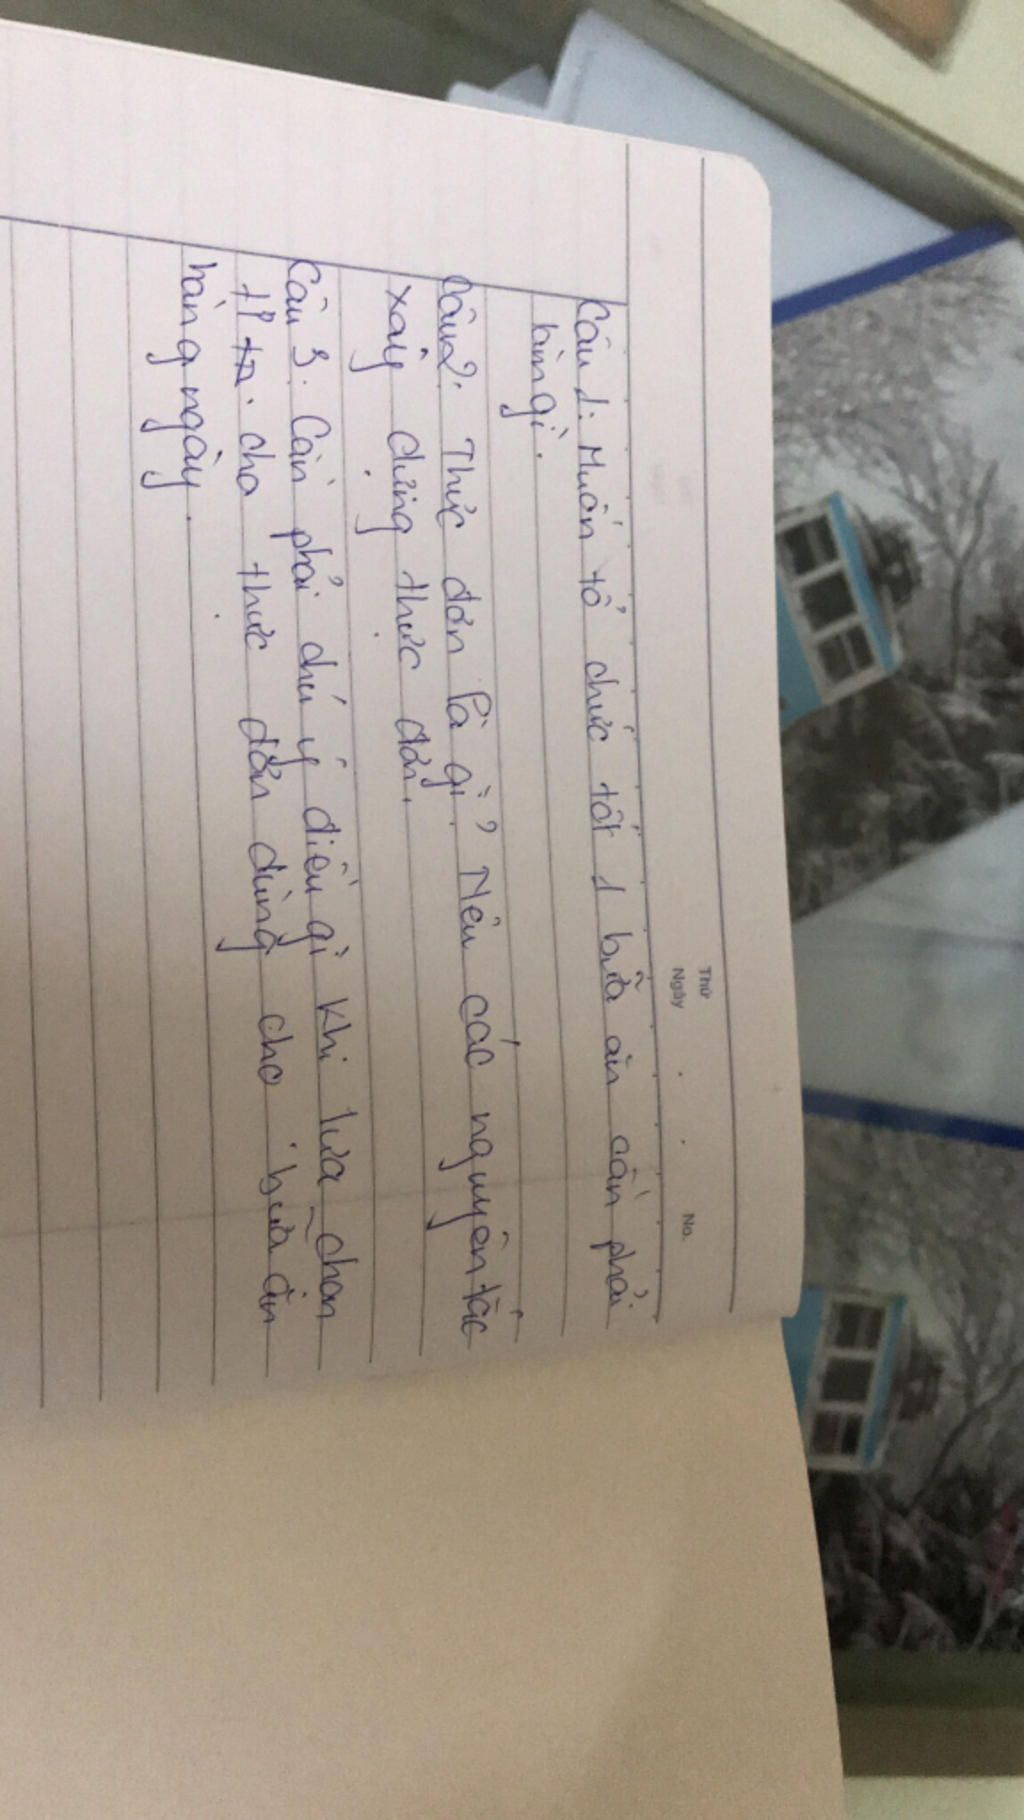 Thứ
Ngày
No.
Câu 1: Muốn tổ chức tốt 1 bữa ăn cần phải
làm gì.
Câu 2. Thực đơn là gì? Nêu các nguyên tắc
xây dựng thực đơn.
Câu 3. Cần phải chú ý điều gì khi lựa chọn
tp cho thực đơn dùng cho bữa ăn
hàng ngày.